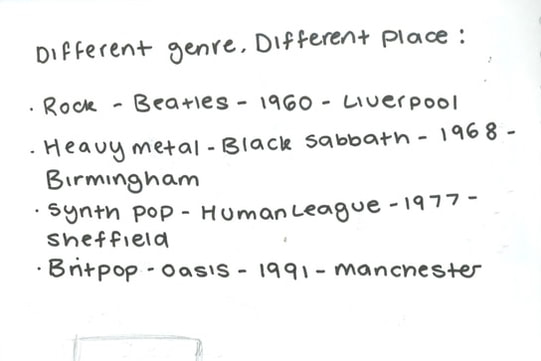 Different genre, Different place :
· Rock - Beatles - 1960 - Liverpool
· Heavy metal - Black sabbath - 1968 -
Birmingham
· synth pop - Human League - 1977 -
sheffield
· Britpop - oasis - 1991 - manchester